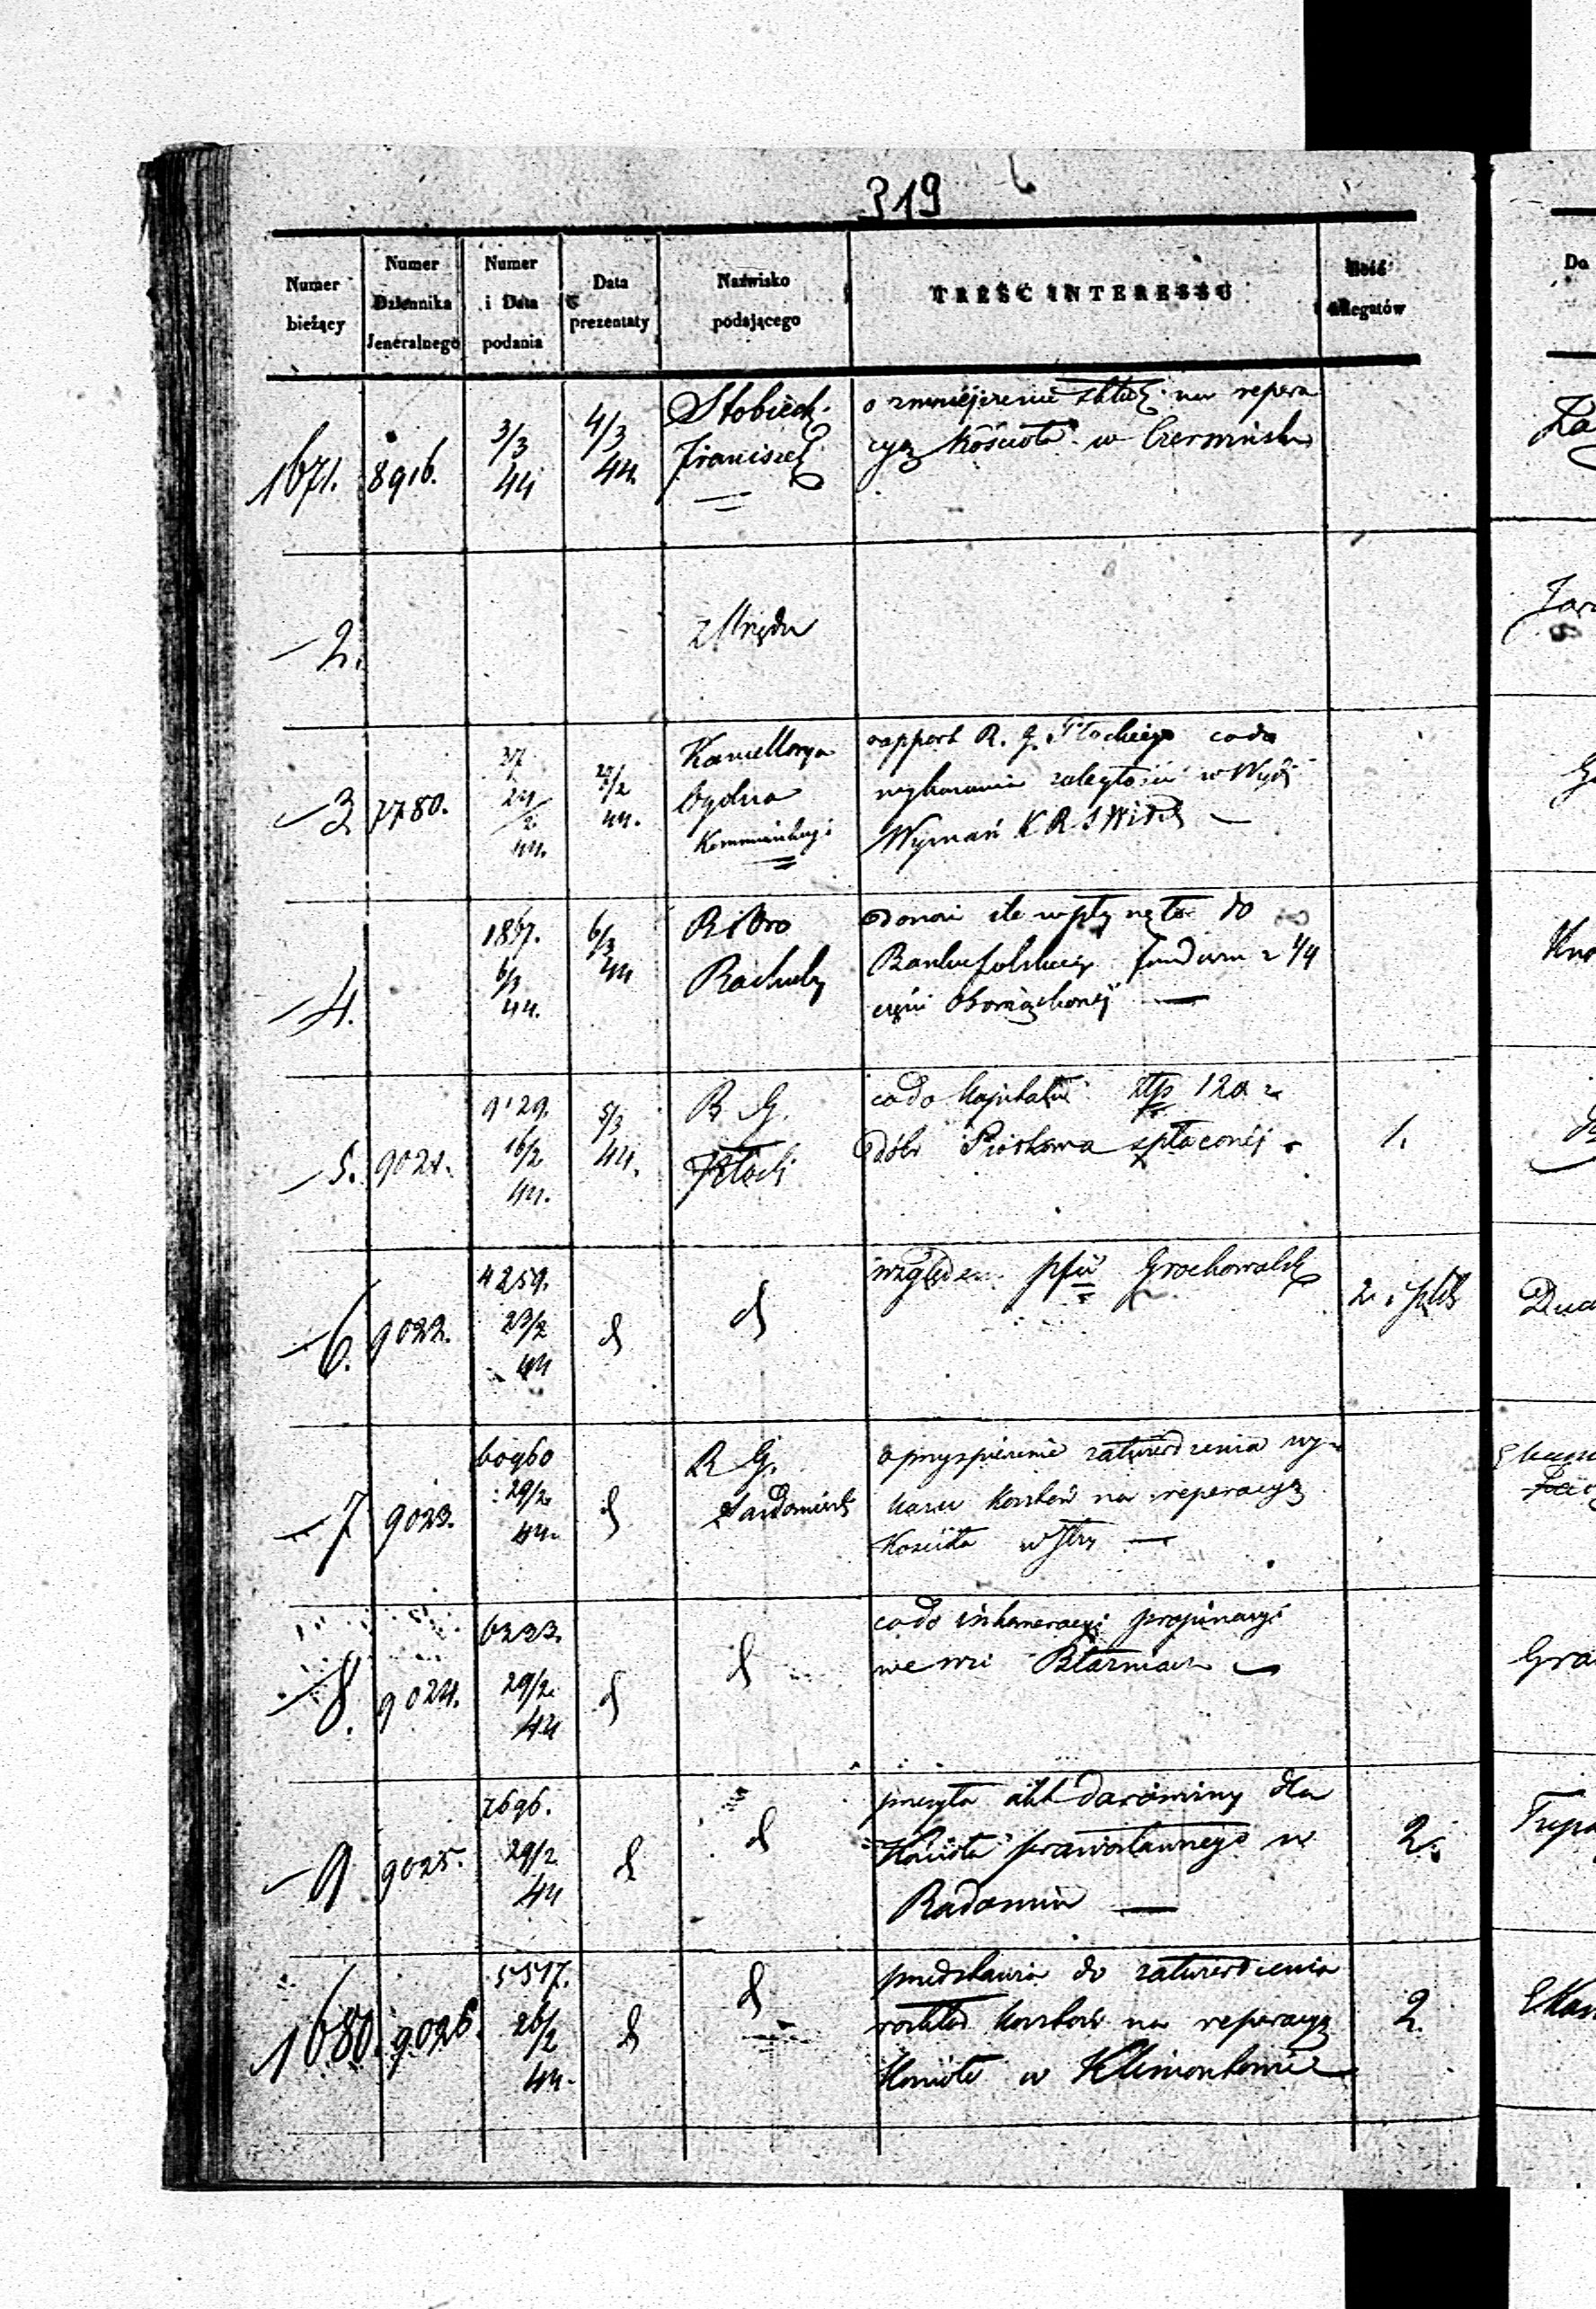 319
Numer bieżący
Numer Dziennika Jeneralnego
Numer i Data podania
Data prezentaty
Nazwisko podającego
TREŚĆ INTERESSU
Ilość allegatów
Do
1671. 8916. 3/3 44 4/3 44. Słobieck. Franciszek
o zmniejszenie składk. na repera
cyą Kościoła w Czerwińsku
2. z Urzędu
3 7780. 27/2 44. Kancellarya Ogólna Kommissyi
rapport R. G. Płockiego co do
wykazania zaległości w Wydz
Wyznań K R S W i D
4. 1867. 6/3 44. 6/3 44 Biuro Rachuby
Donosi ile wpłynęło do
Banku Polskiego funduszu z 1/4
części
5. 9021. 9129. 16/2 44. 5/3 44. R G. Płocki
co do kapitału złp 120 z
dóbr Piotkowa spłaconej
1.
6. 9022. 4259. 23/2 44 d d
względem Grochowalsk
2.
7 9023. 60960 29/2 44. d R G. Sandomiersk
o przyspieszenie zatwierdzenia wy-
kazu kosztów na reperacyą
Kościoła w Iłży
8. 9024. 6233. 29/2 44 d d
co do inkameracyi propinacyi
we wsi Błaznach
9 9025. 2696. 29/2 44 d d
przesyła akt darowizny dla
Kościoła prawosławnego w
Radomiu
2.
1680. 9026. 5517. 26/2 44. d d
przedstawia do zatwierdzenia
rozkład kosztów na reperacyą
Kościoła w Klimontowie
2.